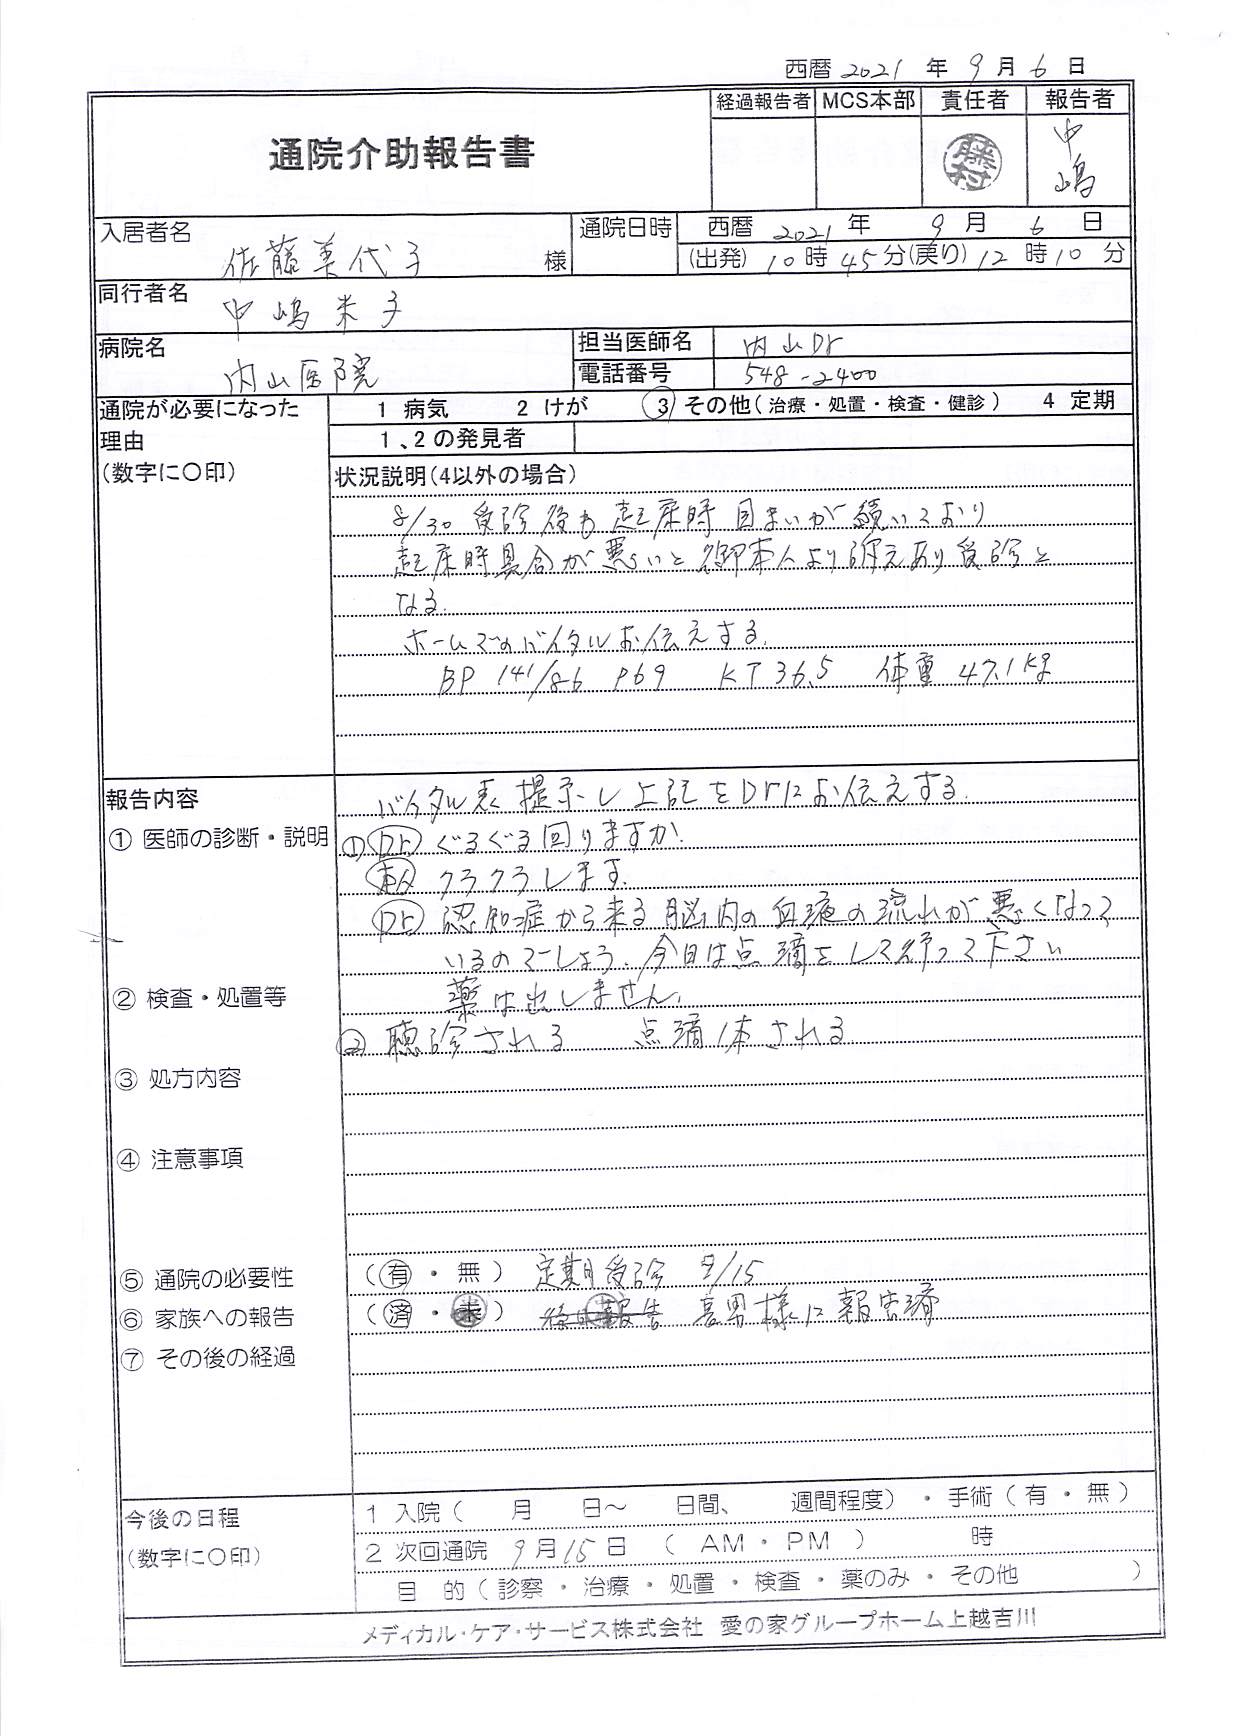 西暦 2021 年 9 月 6 日
経過報告者 MCS本部 責任者 報告者
通院介助報告書
藤村
中嶋
入居者名 佐藤美代子 様
通院日時 西暦 2021 年 9 月 6 日
(出発) 10 時 45 分 (戻り) 12 時 10 分
同行者名 中嶋米子
病院名 内山医院
担当医師名 内山Dr
電話番号 548-2400
通院が必要になった理由
(数字に○印)
1 病気 2 けが ③ その他(治療・処置・検査・健診) 4 定期
1、2の発見者
状況説明(4以外の場合)
8/30 受診後も起床時目まいが続いており
起床時具合が悪いと御本人より訴えあり受診と
なる.
ホームでのバイタルお伝えする.
BP 141/86 P69 KT 36.5 体重 47.1kg
報告内容
バイタル表提示し上記をDrにお伝えする.
① 医師の診断・説明
① Dr ぐるぐる回りますか.
本人 クラクラします.
Dr 認知症から来る脳内の血液の流れが悪くなって
いるのでしょう. 今日は点滴をして行って下さい
薬は出しません.
② 検査・処置等
② 聴診される 点滴1本される
③ 処方内容
④ 注意事項
⑤ 通院の必要性 (有・無) 定期受診 9/15
⑥ 家族への報告 (済・未) 後日報告 喜男様に報告済
⑦ その後の経過
今後の日程
(数字に○印)
1 入院( 月 日~ 日間、 週間程度)・手術(有・無)
2 次回通院 9月15日 (AM・PM) 時
目 的(診察・治療・処置・検査・薬のみ・その他 )
メディカル・ケア・サービス株式会社 愛の家グループホーム上越吉川